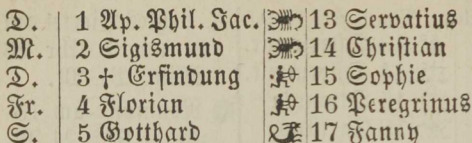 D. 1 Ap. Phil. Jac. 13 Servatius
M. 2 Sigismund 14 Christian
D. 3 † Erfindung 15 Sophie
Fr. 4 Florian 16 Peregrinus
S. 5 Gotthard 17 Fanny